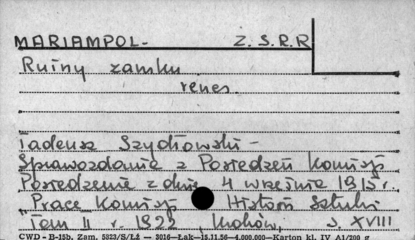 MARIAMPOL- Z.S.R.R
Ruiny zamku
renes.
Tadeusz Szydłowski -
Sprawozdanie z Posiedzeń Komisji
Posiedzenie z dnia 4 września 1915 r.
"Prace Komisji Historii Sztuki
Tom II r. 1922, Kraków, s XVIII
CWD - B-15b. Zam. 5323/S/Łż — 3016—Łak—15.11.56—4.000.000—Karton kl. IV A1/200 g